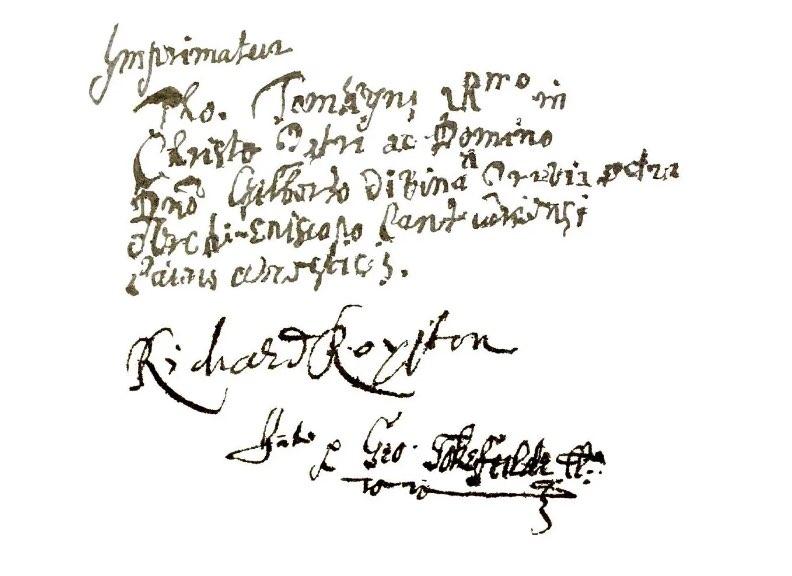 Imprimatur
Tho. Tomkyns R^mo in
Christo Patri ac Domino
Dno Gilberto Divina Providentia
Archi-Episcopo Cantuariensi
a sacris domesticis.
Richard Royston
Geo. Tokefeilde